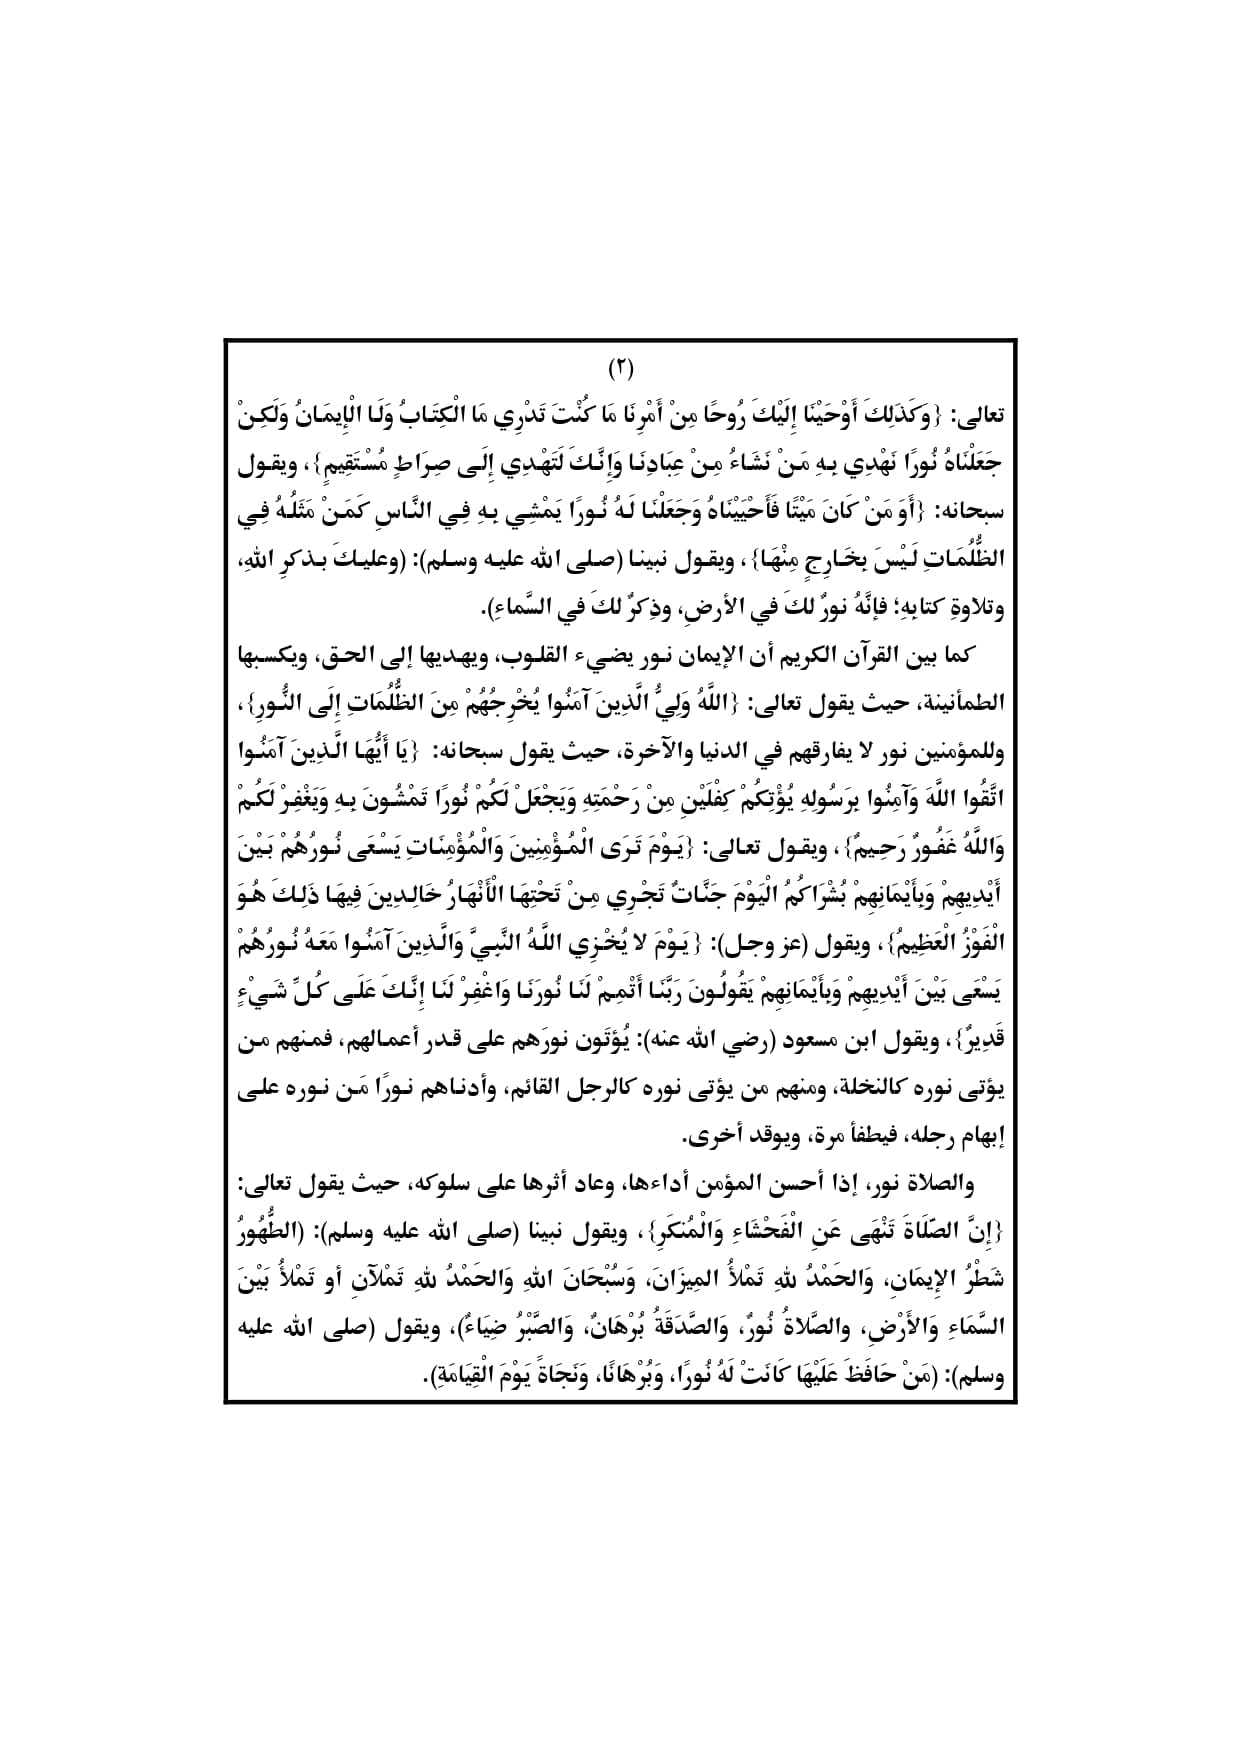 (٢)
تعالى: {وَكَذَلِكَ أَوْحَيْنَا إِلَيْكَ رُوحًا مِنْ أَمْرِنَا مَا كُنْتَ تَدْرِي مَا الْكِتَابُ وَلَا الْإِيمَانُ وَلَكِنْ
جَعَلْنَاهُ نُورًا نَهْدِي بِهِ مَنْ نَشَاءُ مِنْ عِبَادِنَا وَإِنَّكَ لَتَهْدِي إِلَى صِرَاطٍ مُسْتَقِيمٍ}، ويقول
سبحانه: {أَوَ مَنْ كَانَ مَيْتًا فَأَحْيَيْنَاهُ وَجَعَلْنَا لَهُ نُورًا يَمْشِي بِهِ فِي النَّاسِ كَمَنْ مَثَلُهُ فِي
الظُّلُمَاتِ لَيْسَ بِخَارِجٍ مِنْهَا}، ويقول نبينا (صلى الله عليه وسلم): (وعليكَ بذكرِ اللهِ،
وتلاوةِ كتابِهِ؛ فإنَّهُ نورٌ لكَ في الأرضِ، وذِكرٌ لكَ في السَّماءِ).
كما بين القرآن الكريم أن الإيمان نور يضيء القلوب، ويهديها إلى الحق، ويكسبها
الطمأنينة، حيث يقول تعالى: {اللَّهُ وَلِيُّ الَّذِينَ آمَنُوا يُخْرِجُهُمْ مِنَ الظُّلُمَاتِ إِلَى النُّورِ}،
وللمؤمنين نور لا يفارقهم في الدنيا والآخرة، حيث يقول سبحانه: {يَا أَيُّهَا الَّذِينَ آمَنُوا
اتَّقُوا اللَّهَ وَآمِنُوا بِرَسُولِهِ يُؤْتِكُمْ كِفْلَيْنِ مِنْ رَحْمَتِهِ وَيَجْعَلْ لَكُمْ نُورًا تَمْشُونَ بِهِ وَيَغْفِرْ لَكُمْ
وَاللَّهُ غَفُورٌ رَحِيمٌ}، ويقول تعالى: {يَوْمَ تَرَى الْمُؤْمِنِينَ وَالْمُؤْمِنَاتِ يَسْعَى نُورُهُمْ بَيْنَ
أَيْدِيهِمْ وَبِأَيْمَانِهِمْ بُشْرَاكُمُ الْيَوْمَ جَنَّاتٌ تَجْرِي مِنْ تَحْتِهَا الْأَنْهَارُ خَالِدِينَ فِيهَا ذَلِكَ هُوَ
الْفَوْزُ الْعَظِيمُ}، ويقول (عز وجل): {يَوْمَ لا يُخْزِي اللَّهُ النَّبِيَّ وَالَّذِينَ آمَنُوا مَعَهُ نُورُهُمْ
يَسْعَى بَيْنَ أَيْدِيهِمْ وَبِأَيْمَانِهِمْ يَقُولُونَ رَبَّنَا أَتْمِمْ لَنَا نُورَنَا وَاغْفِرْ لَنَا إِنَّكَ عَلَى كُلِّ شَيْءٍ
قَدِيرٌ}، ويقول ابن مسعود (رضي الله عنه): يُؤتَون نورَهم على قدر أعمالهم، فمنهم من
يؤتى نوره كالنخلة، ومنهم من يؤتى نوره كالرجل القائم، وأدناهم نورًا مَن نوره على
إبهام رجله، فيطفأ مرة، ويوقد أخرى.
والصلاة نور، إذا أحسن المؤمن أداءها، وعاد أثرها على سلوكه، حيث يقول تعالى:
{إِنَّ الصَّلَاةَ تَنْهَى عَنِ الْفَحْشَاءِ وَالْمُنكَرِ}، ويقول نبينا (صلى الله عليه وسلم): (الطُّهُورُ
شَطْرُ الإِيمَانِ، وَالحَمْدُ للهِ تَمْلأُ المِيزَانَ، وَسُبْحَانَ اللهِ وَالحَمْدُ للهِ تَمْلآنِ أو تَمْلأُ بَيْنَ
السَّمَاءِ وَالأَرْضِ، والصَّلاةُ نُورٌ، وَالصَّدَقَةُ بُرْهَانٌ، وَالصَّبْرُ ضِيَاءٌ)، ويقول (صلى الله عليه
وسلم): (مَنْ حَافَظَ عَلَيْهَا كَانَتْ لَهُ نُورًا، وَبُرْهَانًا، وَنَجَاةً يَوْمَ الْقِيَامَةِ).